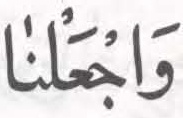 وَاجْعَلْنَا